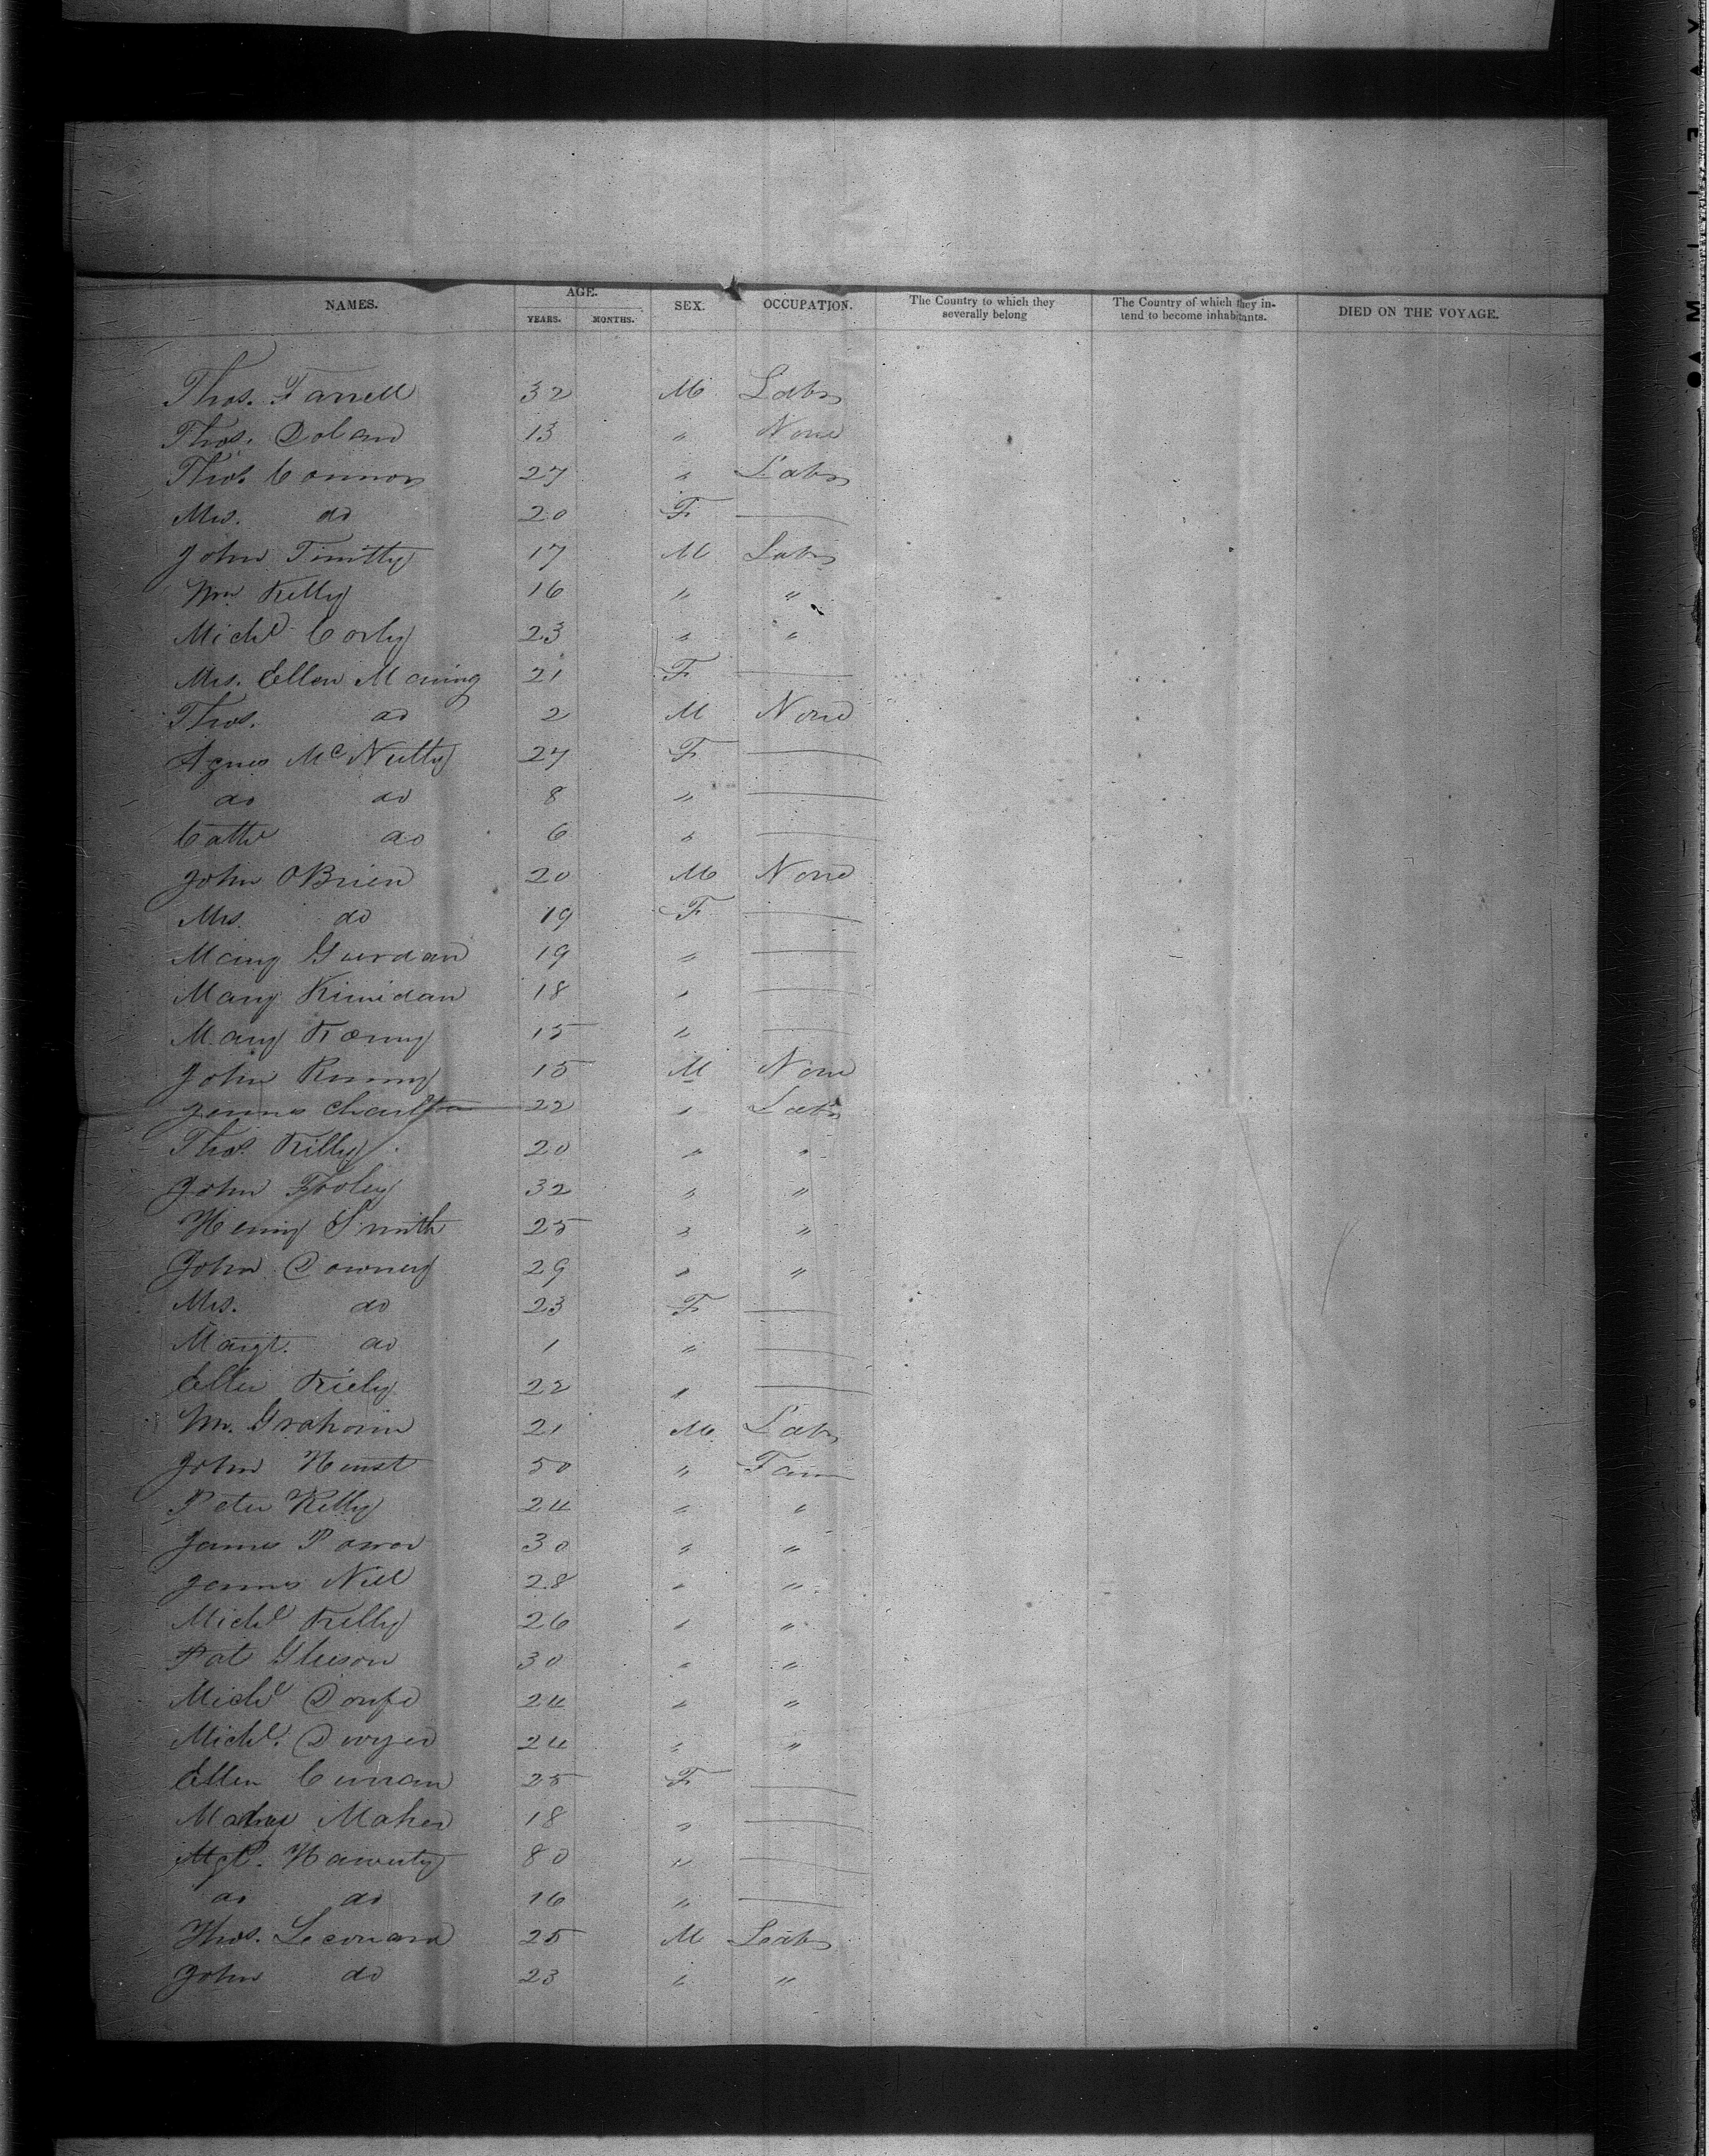 NAMES. AGE. SEX. OCCUPATION. The Country to which they severally belong The Country of which they intend to become inhabitants. DIED ON THE VOYAGE.
YEARS. MONTHS.
Thos. Farrell 32 M Labr
Thos. Dolan 13 " None
Thos. Connor 27 " Labr
Mrs. do 20 F —
John Timtty 17 M Labr
Wm Kelly 16 " "
Michl Corly 23 " "
Mrs. Ellen Maning 21 F —
Thos. do 2 M None
Agnes McNulty 27 F —
do do 8 " —
Cathe do 6 " —
John OBrien 20 M None
Mrs. do 19 F —
Mary Gurdan 19 " —
Mary Kinidan 18 " —
Mary 15 " —
John 15 M None
James Charlton 22 " Labr
Thos. Killy 20 " "
John Fooley 32 " "
Henry Smith 25 " "
John Downey 29 " "
Mrs. do 23 F —
Margt. do 1 " —
Ellen Riely 22 " —
Wm. Graham 21 M Labr
John Hurst 50 " Farm
Peter Kelly 24 " "
James Power 30 " "
James Nill 28 " "
Michl Kelly 26 " "
Pat Gleeson 30 " "
Michl 24 " "
Michl. Dwyer 24 " "
Ellen Curran 25 F —
Maher 18 " —
Mgt. Hawerty 80 " —
do do 16 " —
Thos. Leonard 25 M Labr
John do 23 " "